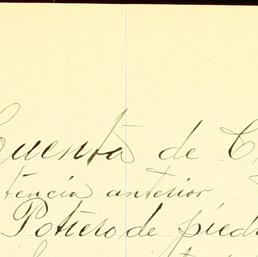 Cuenta de C
tencia anterior
Potrero de piedr